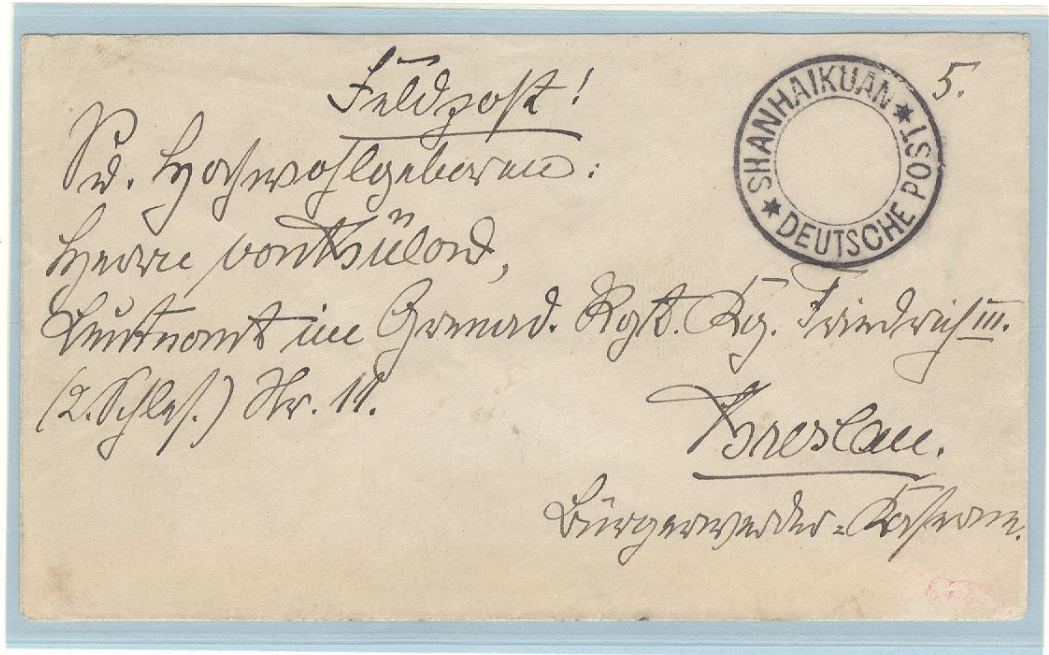 Feldpost!
5.
SHANHAIKUAN
DEUTSCHE POST
Sr. Hochwohlgeboren:
Herrn von
Leutnant im Grenad. Rgt. Kg. Friedrich III.
(2. Schles.) Nr. 11.
Breslau.
Bürgerwerder-Kaserne.